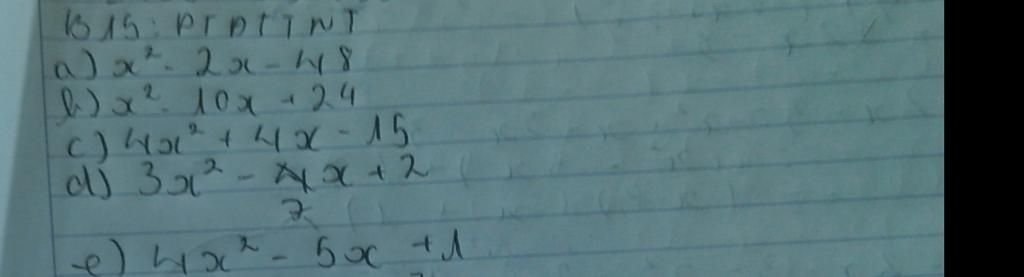 B15: PTĐTTNT
a) x² - 2x - 48
b) x² - 10x + 24
c) 4x² + 4x - 15
d) 3x² - 7x + 2
e) 4x² - 5x + 1